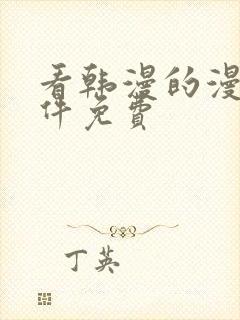 看韩漫的漫
件免費
丁英